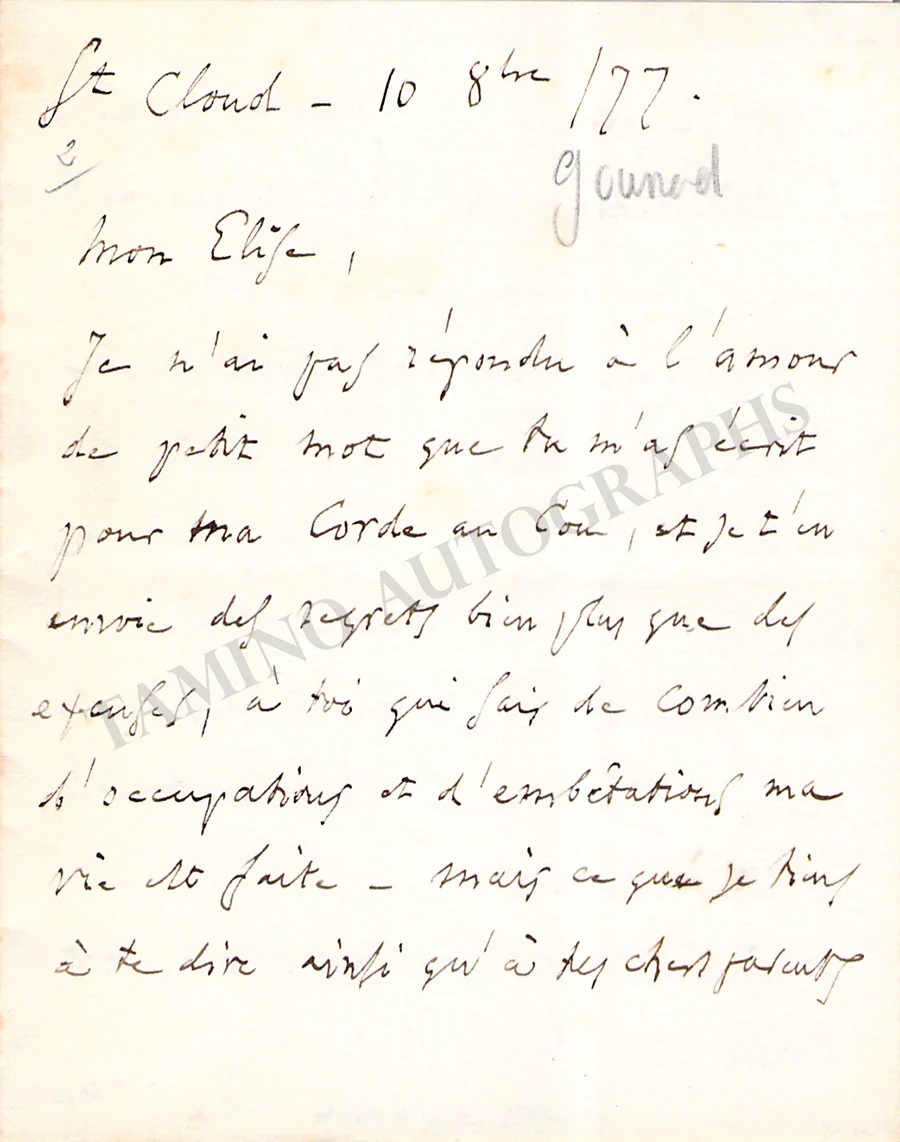 St Cloud – 10 8bre /77.
2/
Gounod
Mon Elise,
Je n'ai pas répondu à l'amour
de petit mot que tu m'as écrit
pour ma Corde au Cou, et je t'en
envoie des regrets bien plus que des
excuses, à toi qui sais de combien
d'occupations et d'embêtations ma
vie est faite – mais ce que je tiens
à te dire ainsi qu'à tes chers parents
TAMINO AUTOGRAPHS